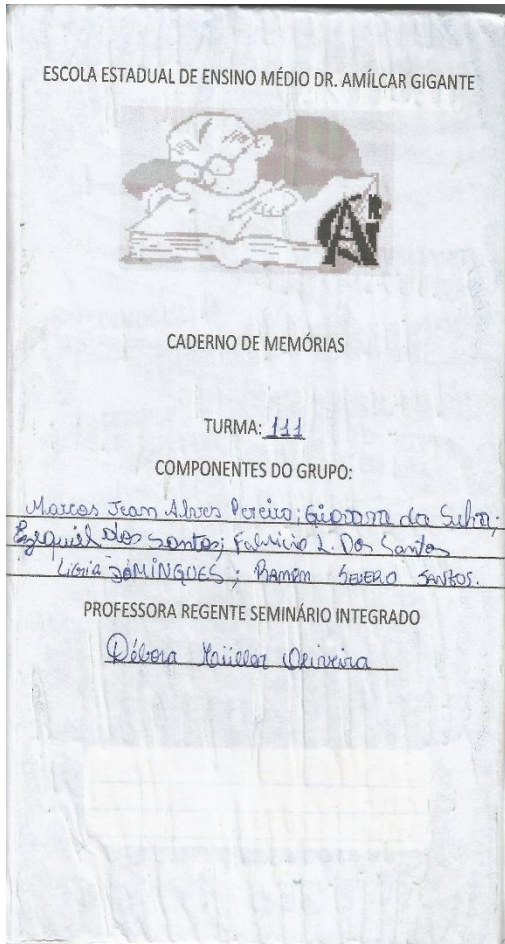 ESCOLA ESTADUAL DE ENSINO MÉDIO DR. AMÍLCAR GIGANTE
CADERNO DE MEMÓRIAS
TURMA: 111
COMPONENTES DO GRUPO:
Marcos Jean Alves Pereira; Giovana da Silva;
Ezequiel dos Santos; Fabricio L. Dos Santos
Ligia DOMINGUES; Ramon SEVERO SANTOS.
PROFESSORA REGENTE SEMINÁRIO INTEGRADO
Débora Oliveira